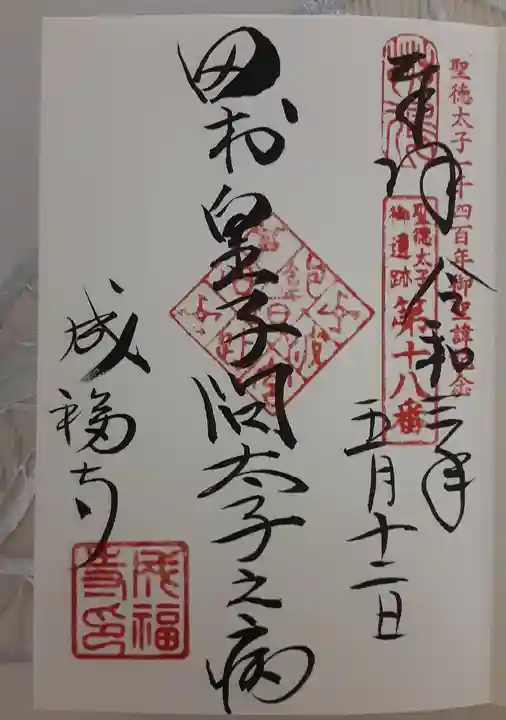 聖徳太子一千四百年御聖諱記念
奉拝
聖徳太子
御遺跡
第十八番
令和三年
五月十二日
田村皇子問太子之病
成福寺
成福
寺印